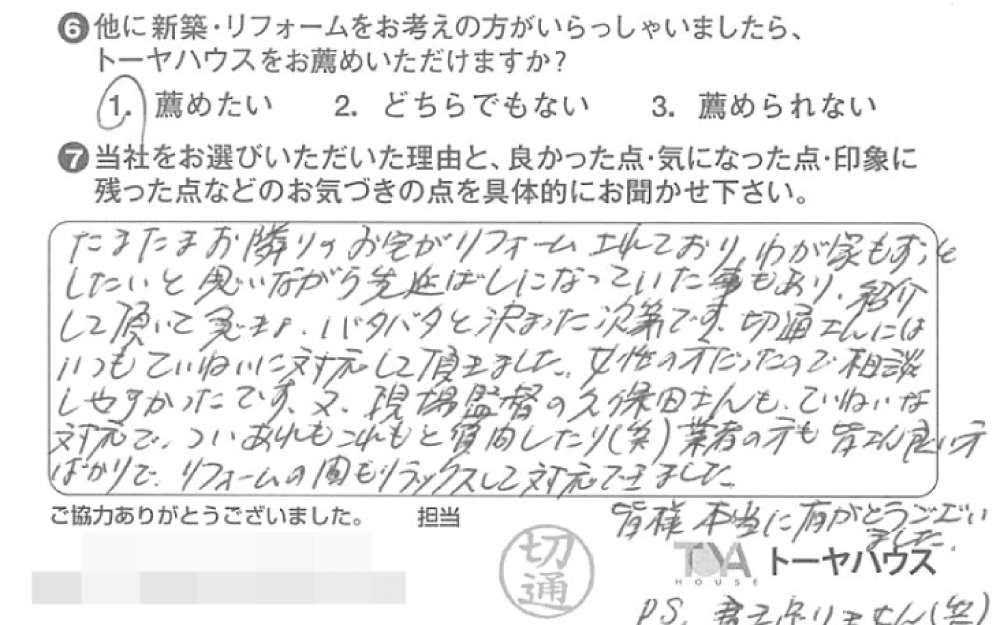 ❻他に新築・リフォームをお考えの方がいらっしゃいましたら、
トーヤハウスをお薦めいただけますか?
1. 薦めたい 2. どちらでもない 3. 薦められない
❼当社をお選びいただいた理由と、良かった点・気になった点・印象に
残った点などのお気づきの点を具体的にお聞かせ下さい。
たまたまお隣りのお宅がリフォームされており、わが家もずっと
したいと思いながら先延ばしになっていた事もあり、紹介
して頂いて急きょ、バタバタと決まった次第です。切通さんには
いつもていねいに対応して頂きました。女性の方だったので相談
しやすかったです。又、現場監督の久保田さんも、ていねいな
対応で、ついあれもこれもと質問したり(笑)業者の方も皆さん良い方
ばかりで、リフォームの間もリラックスして対応できました。
ご協力ありがとうございました。 担当
皆様本当に有がとうござい
ました。
切通
TOYA HOUSE トーヤハウス
P.S. りません(笑)